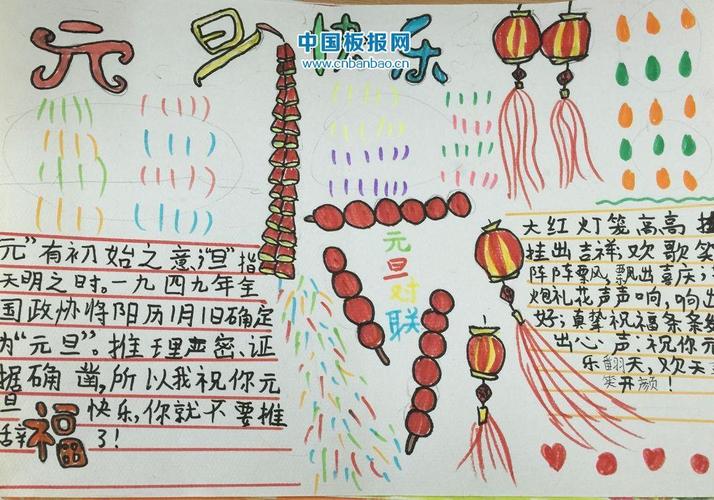 元旦快乐
中国板报网
www.cnbanbao.cn
元"有初始之意,"旦"指
天明之时。一九四九年全
国政协将阳历1月1日确定
为"元旦"。推理严密、证
据确凿,所以我祝你元
旦 快乐,你就不要推
辞 了!
福
元旦对联
大红灯笼高高挂
挂出吉祥,欢歌笑
阵阵飘风,飘出喜庆;
炮礼花声声响,响出
好;真挚祝福条条
出心声:祝你元
乐翻天,欢天
笑开颜!